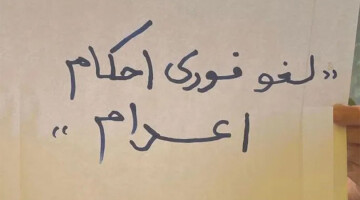 «لغو فوری احکام
اعدام»